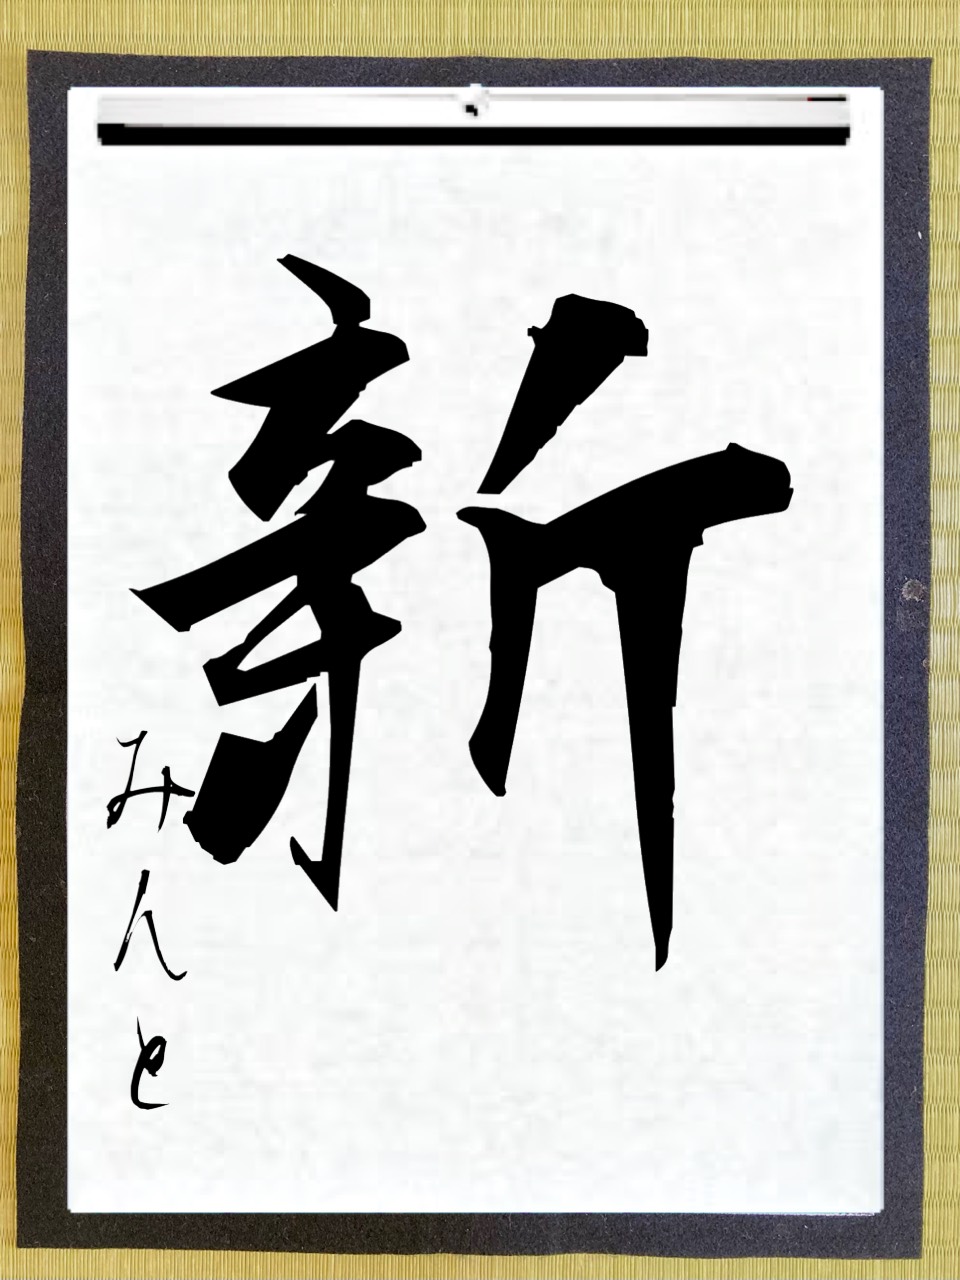 新
みんと